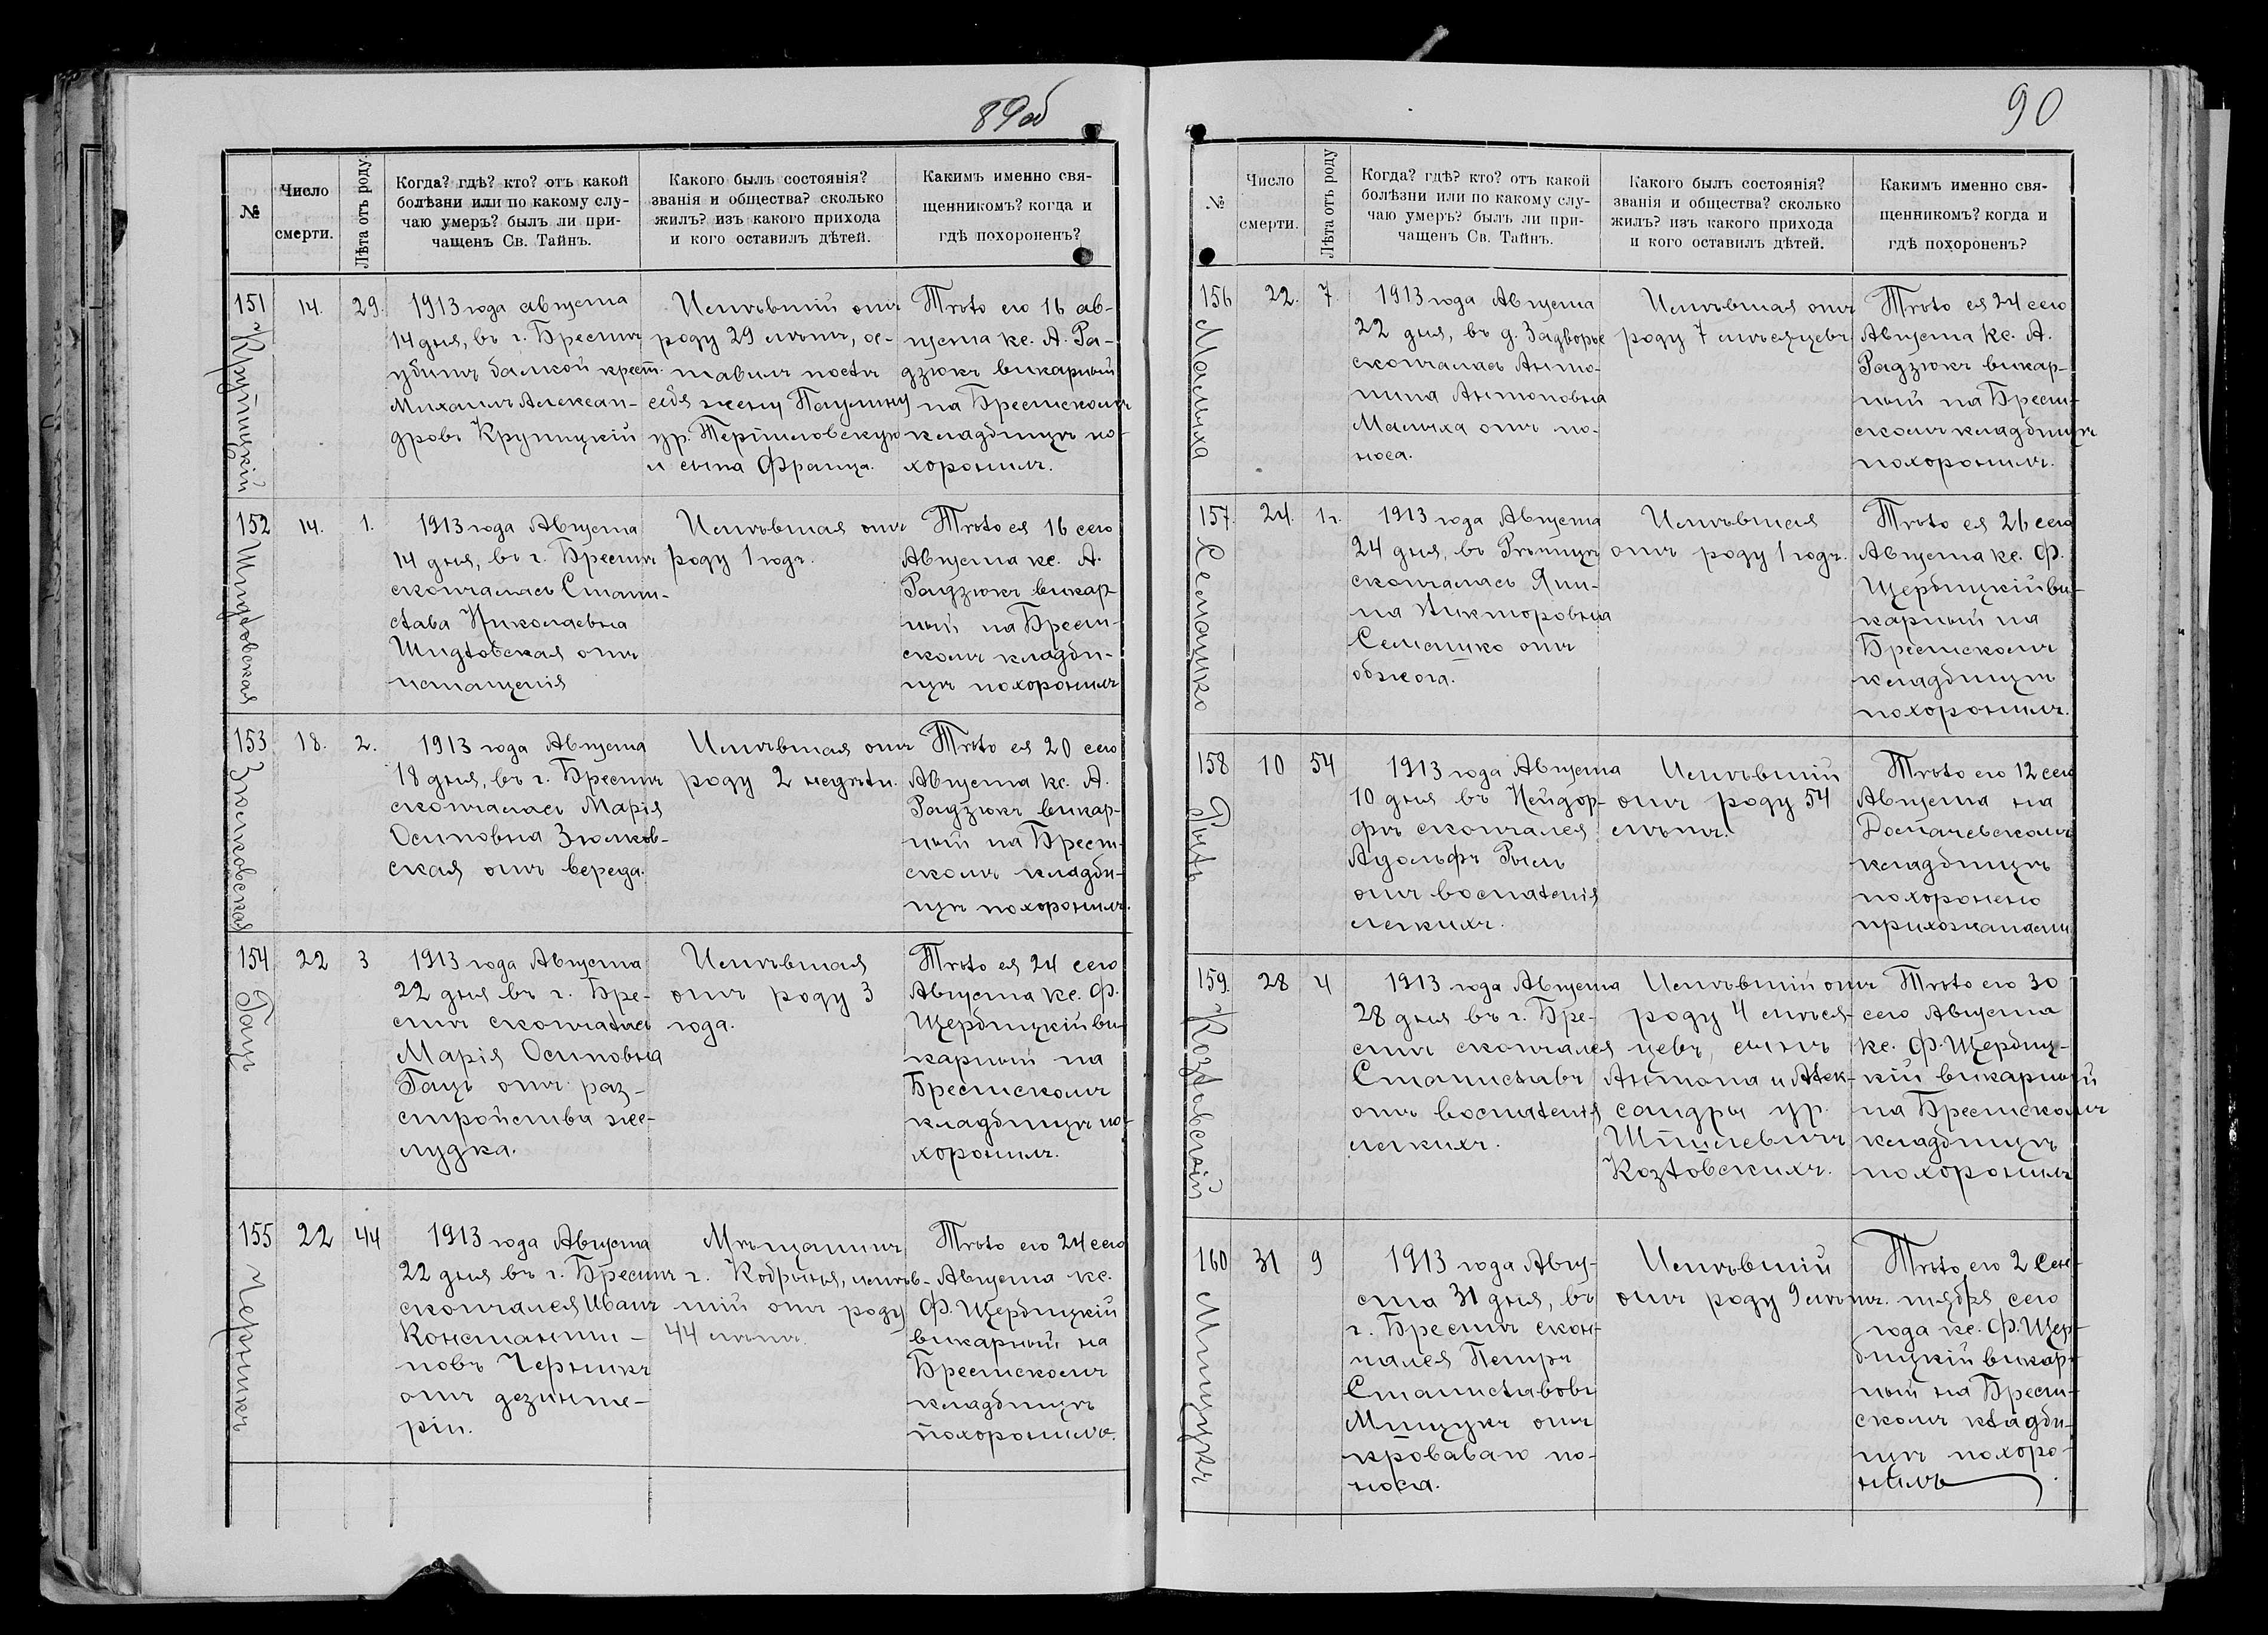 89об
№
Число
смерти.
Лѣта отъ роду.
Когда? гдѣ? кто? отъ какой
болѣзни или по какому слу-
чаю умеръ? былъ ли при-
чащенъ Св. Тайнъ.
Какого былъ состоянія?
званія и общества? сколько
жилъ? изъ какого прихода
и кого оставилъ дѣтей.
Какимъ именно свя-
щенникомъ? когда и
гдѣ похороненъ?
151
Крупицкій
14.
29.
1913 года августа
14 дня, въ г. Брестѣ
убитъ балкой крест.
Михаилъ Алексан-
дровъ Крупицкій
Имѣвшій отъ
роду 29 лѣтъ, ос-
тавилъ послѣ
себя жену Паулину
ур. Терпиловскую
и сына Франца.
Тѣло его 16 ав-
густа кс. А. Ра-
дзюкъ викарный
на Брестскомъ
кладбищѣ по-
хоронилъ.
152
Шидловская
14.
1.
1913 года Августа
14 дня, въ г. Брестѣ
скончалась Стани-
слава Николаевна
Шидловская отъ
истощенія
Имѣвшая отъ
роду 1 годъ.
Тѣло ея 16 сего
Августа кс. А.
Радзюкъ викар-
ный на Брест-
скомъ кладби-
щѣ похоронилъ
153
Зюлковская
18.
2.
1913 года Августа
18 дня, въ г. Брестѣ
скончалась Марія
Осиповна Зюлков-
ская отъ вереда.
Имѣвшая отъ
роду 2 недѣли.
Тѣло ея 20 сего
Августа кс. А.
Радзюкъ викар-
ный на Брест-
скомъ кладби-
щѣ похоронилъ.
154
Гацъ
22
3
1913 года Августа
22 дня въ г. Бре-
стѣ скончалась
Марія Осиповна
Гацъ отъ раз-
стройства же-
лудка.
Имѣвшая
отъ роду 3
года.
Тѣло ея 24 сего
Августа кс. Ф.
Щербицкій ви-
карный на
Брестскомъ
кладбищѣ по-
хоронилъ.
155
Черникъ
22
44
1913 года Августа
22 дня въ г. Брестѣ
скончался Иванъ
Константи-
новъ Черникъ
отъ дезинте-
ріи.
Мѣщанинъ
г. Кобрина, имѣв-
шій отъ роду
44 лѣтъ.
Тѣло его 24 сего
Августа кс.
Ф. Щербицкій
викарный на
Брестскомъ
кладбищѣ
похоронилъ.
90
№
Число
смерти.
Лѣта отъ роду
Когда? гдѣ? кто? отъ какой
болѣзни или по какому слу-
чаю умеръ? былъ ли при-
чащенъ Св. Тайнъ.
Какого былъ состоянія?
званія и общества? сколько
жилъ? изъ какого прихода
и кого оставилъ дѣтей.
Какимъ именно свя-
щенникомъ? когда и
гдѣ похороненъ?
156
Малыха
22.
7.
1913 года Августа
22 дня, въ д. Задворье
скончалась Анто-
нина Антоновна
Малыха отъ по-
носа.
Имѣвшая отъ
роду 7 мѣсяцевъ
Тѣло ея 24 сего
Августа кс. А.
Радзюкъ викар-
ный на Брест-
скомъ кладбищѣ
похоронилъ.
157.
Семашко
24.
1г.
1913 года Августа
24 дня, въ Рѣчицѣ
скончалась Яни-
на Викторовна
Семашко отъ
обжога.
Имѣвшая
отъ роду 1 годъ.
Тѣло ея 26 сего
Августа кс. Ф.
Щербицкій ви-
карный на
Брестскомъ
кладбищѣ
похоронилъ.
158
Рыль
10
54
1913 года Августа
10 дня въ Нейдор-
фѣ скончался
Адольфъ Рыль
отъ воспаленія
легкихъ.
Имѣвшій
отъ роду 54
лѣтъ.
Тѣло его 12 сего
Августа на
кладбищѣ
похоронено
прихожанами
159.
Козловскій
28
4
1913 года Августа
28 дня въ г. Бре-
стѣ скончался
Станиславъ
отъ воспаленія
легкихъ.
Имѣвшій отъ
роду 4 мѣся-
цевъ, сынъ
Антона и Алек-
сандры ур.
Козловскихъ.
Тѣло его 30
сего Августа
кс. Ф. Щербиц-
кій викарный
на Брестскомъ
кладбищѣ
похоронилъ
160
Мицукъ
31
9
1913 года Авгу-
ста 31 дня, въ
г. Брестѣ скон-
чался Петръ
Станиславовъ
Мицукъ отъ
кроваваго по-
носа.
Имѣвшій
отъ роду 9 лѣтъ.
Тѣло его 2 Сен-
тября сего
года кс. Ф. Щер-
бицкій викар-
ный на Брест-
скомъ кладби-
щѣ похоро-
нилъ